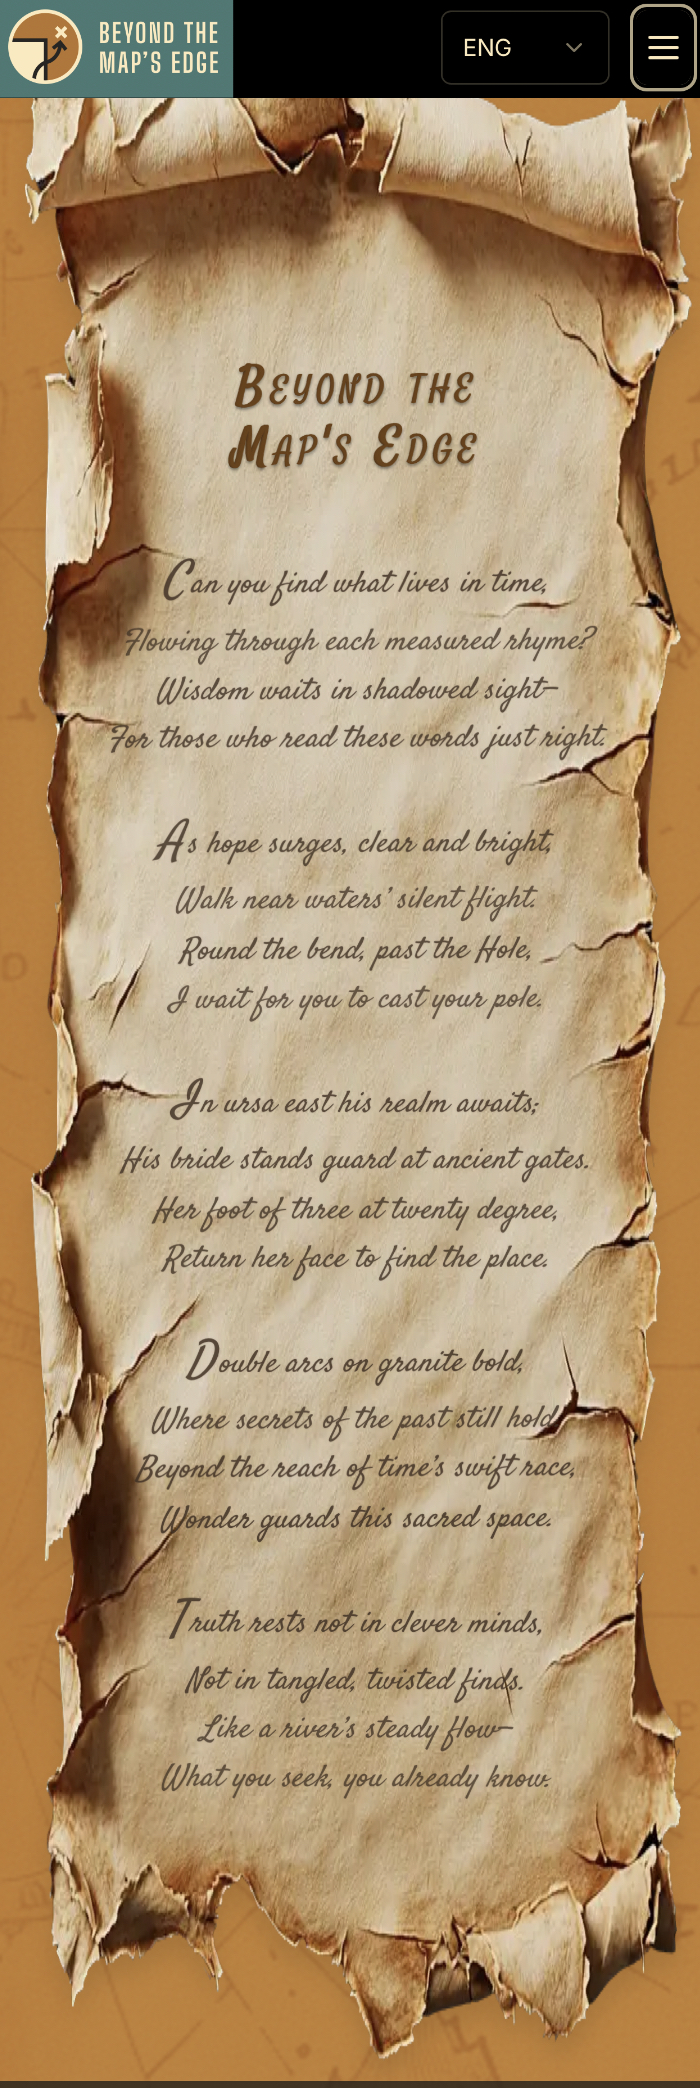 BEYOND THE
MAP'S EDGE
ENG
Beyond the
Map's Edge
Can you find what lives in time,
Flowing through each measured rhyme?
Wisdom waits in shadowed sight—
For those who read these words just right.
As hope surges, clear and bright,
Walk near waters' silent flight.
Round the bend, past the Hole,
I wait for you to cast your pole.
In ursa east his realm awaits;
His bride stands guard at ancient gates.
Her foot of three at twenty degree,
Return her face to find the place.
Double arcs on granite bold,
Where secrets of the past still hold
Beyond the reach of time's swift race,
Wonder guards this sacred space.
Truth rests not in clever minds,
Not in tangled, twisted finds.
Like a river's steady flow—
What you seek, you already know.